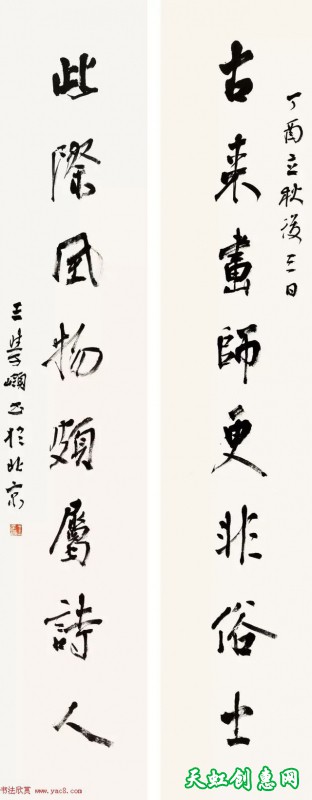 丁酉立秋後三日
古來畫師更非俗士
此際風物頗屬詩人
王學嶺書於北京
书法欣赏 www.yac8.com
天虹创惠网